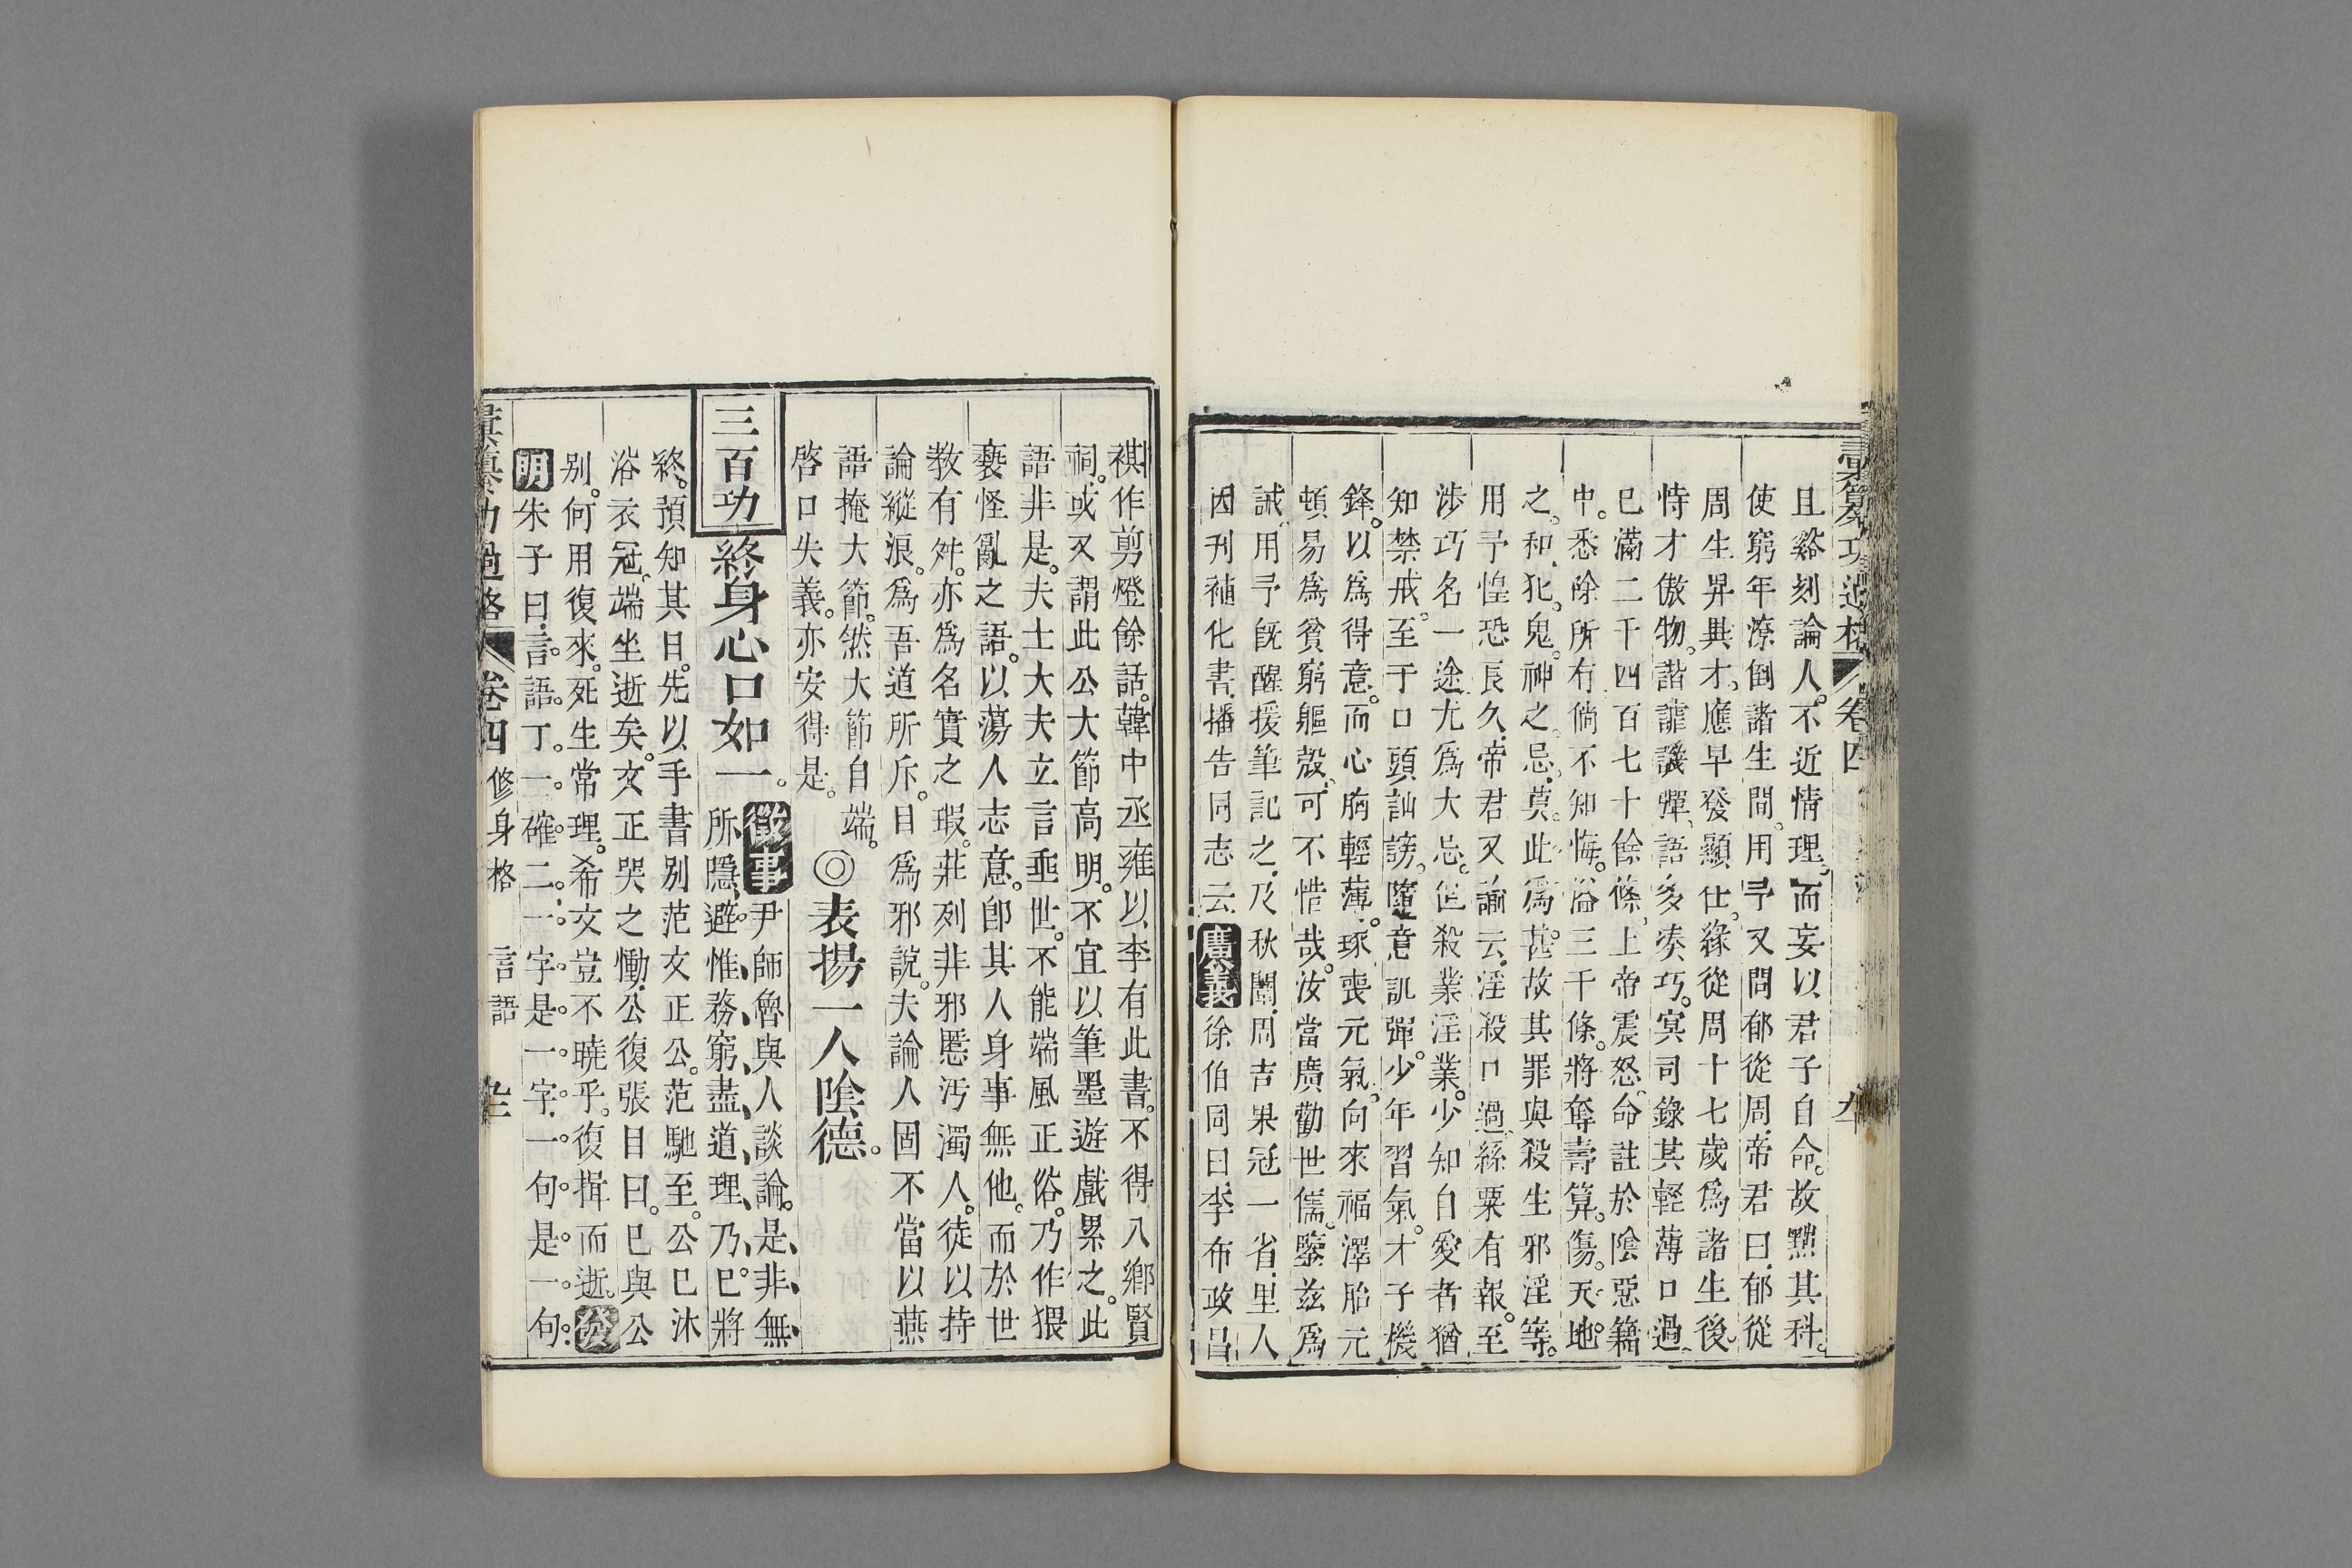 功過格 卷四
且谿刻論人。不近情理。而妄以君子自命。故黜其科。
使窮年潦倒諸生間。用予又問郁從周。帝君曰。郁從
周生昇異才。應早發顯仕。緣從周十七歲爲諸生後。
恃才傲物。諧謔譏彈。語多湊巧。冥司錄其輕薄口過。
已滿二千四百七十餘條。上帝震怒。命註於陰惡籍
中。悉除所有。倘不知悔。溢三千條。將奪壽算。傷天地
之和。犯鬼神之忌。莫此爲甚。故其罪與殺生邪淫等。
用予惶恐良久。帝君又諭云。淫殺口過。絲粟有報。至
涉巧名一途。尤爲大忌。但殺業淫業。少知自愛者猶
知禁戒。至于口頭訕謗。隨意訊彈。少年習氣。才子機
鋒。以爲得意。而心胸輕薄。琢喪元氣。向來福澤胎元
頓易爲貧窮軀殼。可不惜哉。汝當廣勸世儒。鑒兹爲
誡。用予旣醒援筆記之。及秋闈。周吉果冠一省。里人
因刊補化書。播告同志云 廣義 徐伯同曰。李布政昌
祺作剪燈餘話。韓中丞雍以李有此書。不得入鄉賢
祠。或又謂此公大節高明。不宜以筆墨遊戲累之。此
語非是。夫士大夫立言垂世。不能端風正俗。乃作猥
褻怪亂之語。以蕩人志意。卽其人身事無他。而於世
敎有舛。亦爲名實之瑕。莊列非邪慝汚濁人。徒以持
論縱浪。爲吾道所斥。目爲邪說。夫論人固不當以燕
語掩大節。然大節自端。
啓口失義。亦安得是。◎表揚一人陰德。
三百功 終身心口如一。 徵事 尹師魯與人談論。是非無
所隱避。惟務窮盡道理乃已。將
終。預知其日。先以手書别范文正公。范馳至。公已沐
浴衣冠。端坐逝矣。文正哭之慟。公復張目曰。已與公
别。何用復來。死生常理。希文豈不曉乎。復揖而逝。發
明 朱子曰。言語。丁一確二。一字是一字。一句是一句。
功過格 卷四 修身格 言語